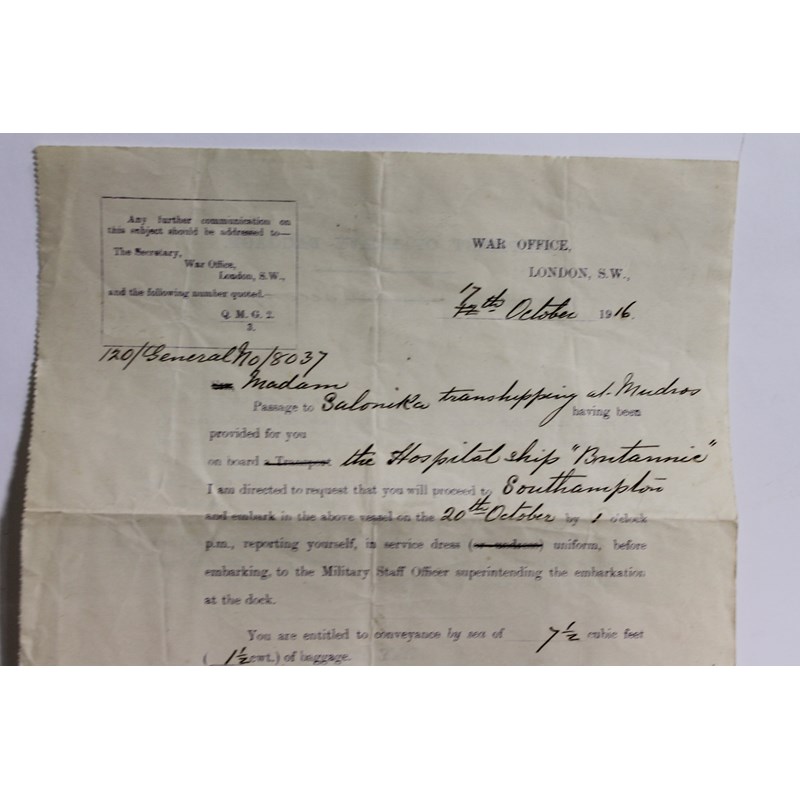 Any further communication on
this subject should be addressed to—
The Secretary,
War Office,
London, S.W.,
and the following number quoted.—
Q. M. G. 2.
3.
120/General No/8037
WAR OFFICE,
LONDON, S.W.,
17th October 1916.
Madam
Passage to Salonika transhipping at Mudros having been
provided for you
on board a Transport the Hospital ship "Britannic"
I am directed to request that you will proceed to Southampton
and embark in the above vessel on the 20th October by 1 o'clock
p.m., reporting yourself, in service dress (or undress) uniform, before
embarking, to the Military Staff Officer superintending the embarkation
at the dock.
You are entitled to conveyance by sea of 7½ cubic feet
(1½ cwt.) of baggage.